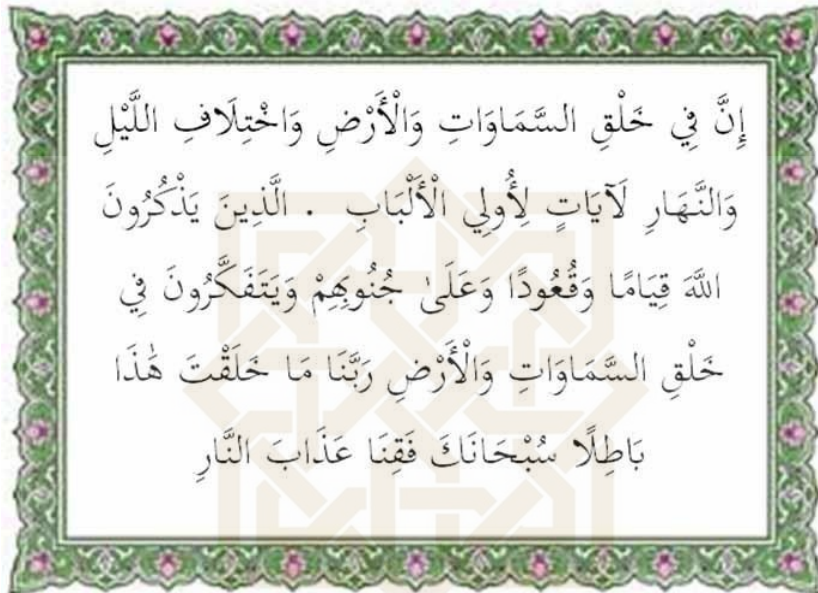 إِنَّ فِي خَلْقِ السَّمَاوَاتِ وَالْأَرْضِ وَاخْتِلَافِ اللَّيْلِ
وَالنَّهَارِ لَآيَاتٍ لِأُولِي الْأَلْبَابِ . الَّذِينَ يَذْكُرُونَ
اللَّهَ قِيَامًا وَقُعُودًا وَعَلَىٰ جُنُوبِهِمْ وَيَتَفَكَّرُونَ فِي
خَلْقِ السَّمَاوَاتِ وَالْأَرْضِ رَبَّنَا مَا خَلَقْتَ هَٰذَا
بَاطِلًا سُبْحَانَكَ فَقِنَا عَذَابَ النَّارِ